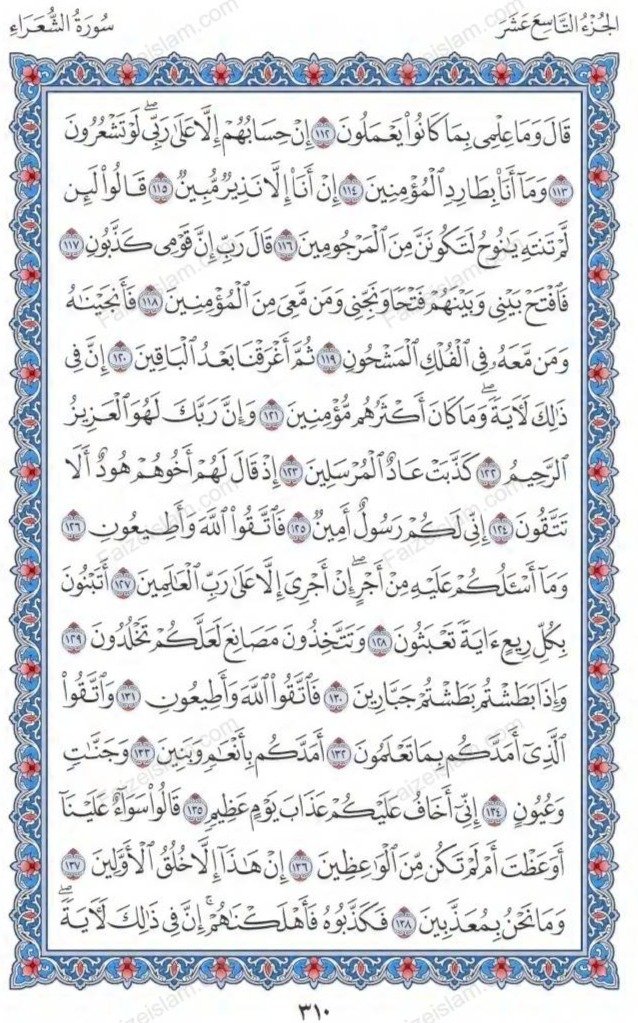 الجُزْءُ التَّاسِعَ عَشَرَ
سُورَةُ الشُّعَرَاءِ
قَالَ وَمَا عِلْمِى بِمَا كَانُوا۟ يَعْمَلُونَ ١١٢ إِنْ حِسَابُهُمْ إِلَّا عَلَىٰ رَبِّى ۖ لَوْ تَشْعُرُونَ
١١٣ وَمَآ أَنَا۠ بِطَارِدِ ٱلْمُؤْمِنِينَ ١١٤ إِنْ أَنَا۠ إِلَّا نَذِيرٌ مُّبِينٌ ١١٥ قَالُوا۟ لَئِن
لَّمْ تَنتَهِ يَـٰنُوحُ لَتَكُونَنَّ مِنَ ٱلْمَرْجُومِينَ ١١٦ قَالَ رَبِّ إِنَّ قَوْمِى كَذَّبُونِ ١١٧
فَٱفْتَحْ بَيْنِى وَبَيْنَهُمْ فَتْحًا وَنَجِّنِى وَمَن مَّعِىَ مِنَ ٱلْمُؤْمِنِينَ ١١٨ فَأَنجَيْنَـٰهُ
وَمَن مَّعَهُۥ فِى ٱلْفُلْكِ ٱلْمَشْحُونِ ١١٩ ثُمَّ أَغْرَقْنَا بَعْدُ ٱلْبَاقِينَ ١٢٠ إِنَّ فِى
ذَٰلِكَ لَـَٔايَةً ۖ وَمَا كَانَ أَكْثَرُهُم مُّؤْمِنِينَ ١٢١ وَإِنَّ رَبَّكَ لَهُوَ ٱلْعَزِيزُ
ٱلرَّحِيمُ ١٢٢ كَذَّبَتْ عَادٌ ٱلْمُرْسَلِينَ ١٢٣ إِذْ قَالَ لَهُمْ أَخُوهُمْ هُودٌ أَلَا
تَتَّقُونَ ١٢٤ إِنِّى لَكُمْ رَسُولٌ أَمِينٌ ١٢٥ فَٱتَّقُوا۟ ٱللَّهَ وَأَطِيعُونِ ١٢٦
وَمَآ أَسْـَٔلُكُمْ عَلَيْهِ مِنْ أَجْرٍ ۖ إِنْ أَجْرِىَ إِلَّا عَلَىٰ رَبِّ ٱلْعَـٰلَمِينَ ١٢٧ أَتَبْنُونَ
بِكُلِّ رِيعٍ ءَايَةً تَعْبَثُونَ ١٢٨ وَتَتَّخِذُونَ مَصَانِعَ لَعَلَّكُمْ تَخْلُدُونَ ١٢٩
وَإِذَا بَطَشْتُم بَطَشْتُمْ جَبَّارِينَ ١٣٠ فَٱتَّقُوا۟ ٱللَّهَ وَأَطِيعُونِ ١٣١ وَٱتَّقُوا۟
ٱلَّذِىٓ أَمَدَّكُم بِمَا تَعْلَمُونَ ١٣٢ أَمَدَّكُم بِأَنْعَـٰمٍ وَبَنِينَ ١٣٣ وَجَنَّـٰتٍ
وَعُيُونٍ ١٣٤ إِنِّىٓ أَخَافُ عَلَيْكُمْ عَذَابَ يَوْمٍ عَظِيمٍ ١٣٥ قَالُوا۟ سَوَآءٌ عَلَيْنَآ
أَوَعَظْتَ أَمْ لَمْ تَكُن مِّنَ ٱلْوَٰعِظِينَ ١٣٦ إِنْ هَـٰذَآ إِلَّا خُلُقُ ٱلْأَوَّلِينَ ١٣٧
وَمَا نَحْنُ بِمُعَذَّبِينَ ١٣٨ فَكَذَّبُوهُ فَأَهْلَكْنَـٰهُمْ ۗ إِنَّ فِى ذَٰلِكَ لَـَٔايَةً ۖ
٣١٠
Faizeislam.com